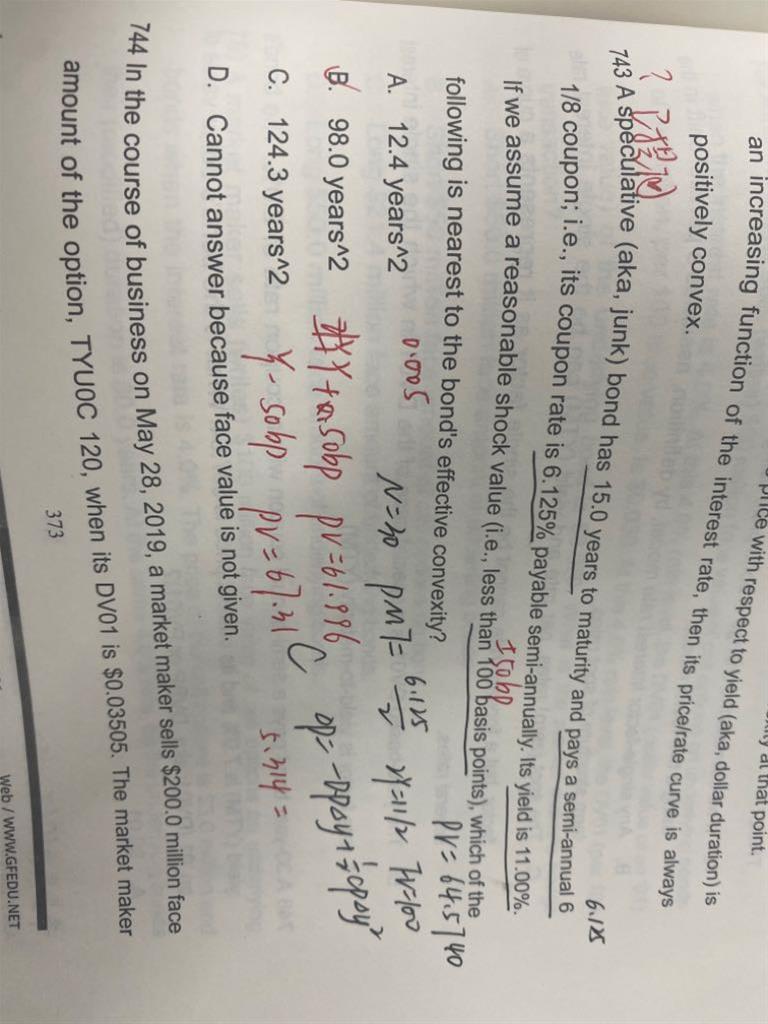 price with respect to yield (aka, dollar duration) is
an increasing function of the interest rate, then its price/rate curve is always
at that point.
positively convex.
?
743 A speculative (aka, junk) bond has 15.0 years to maturity and pays a semi-annual 6
6.125
1/8 coupon; i.e., its coupon rate is 6.125% payable semi-annually. Its yield is 11.00%.
If we assume a reasonable shock value (i.e., less than 100 basis points), which of the
±50bp
following is nearest to the bond's effective convexity?
PV= 64.5740
A. 12.4 years^2
0.005
N=30 PMT= 6.125/2 I/Y=11/2 FV=100
B. 98.0 years^2
Y+50bp PV=61.996
C
C. 124.3 years^2
Y-50bp PV=67.31
5.314=
D. Cannot answer because face value is not given.
744 In the course of business on May 28, 2019, a market maker sells $200.0 million face
amount of the option, TYU0C 120, when its DV01 is $0.03505. The market maker
373
Web / WWW.GFEDU.NET